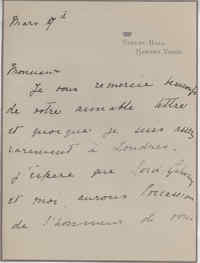 Mars 9d
SERLBY HALL
BAWTRY, YORKS.
Monsieur
Je vous remercie
de votre aimable lettre
et quoique je suis assez
rarement à Londres.
j'espère que Lord Galway
et moi, aurons l'occasion
de l'honneur de vous